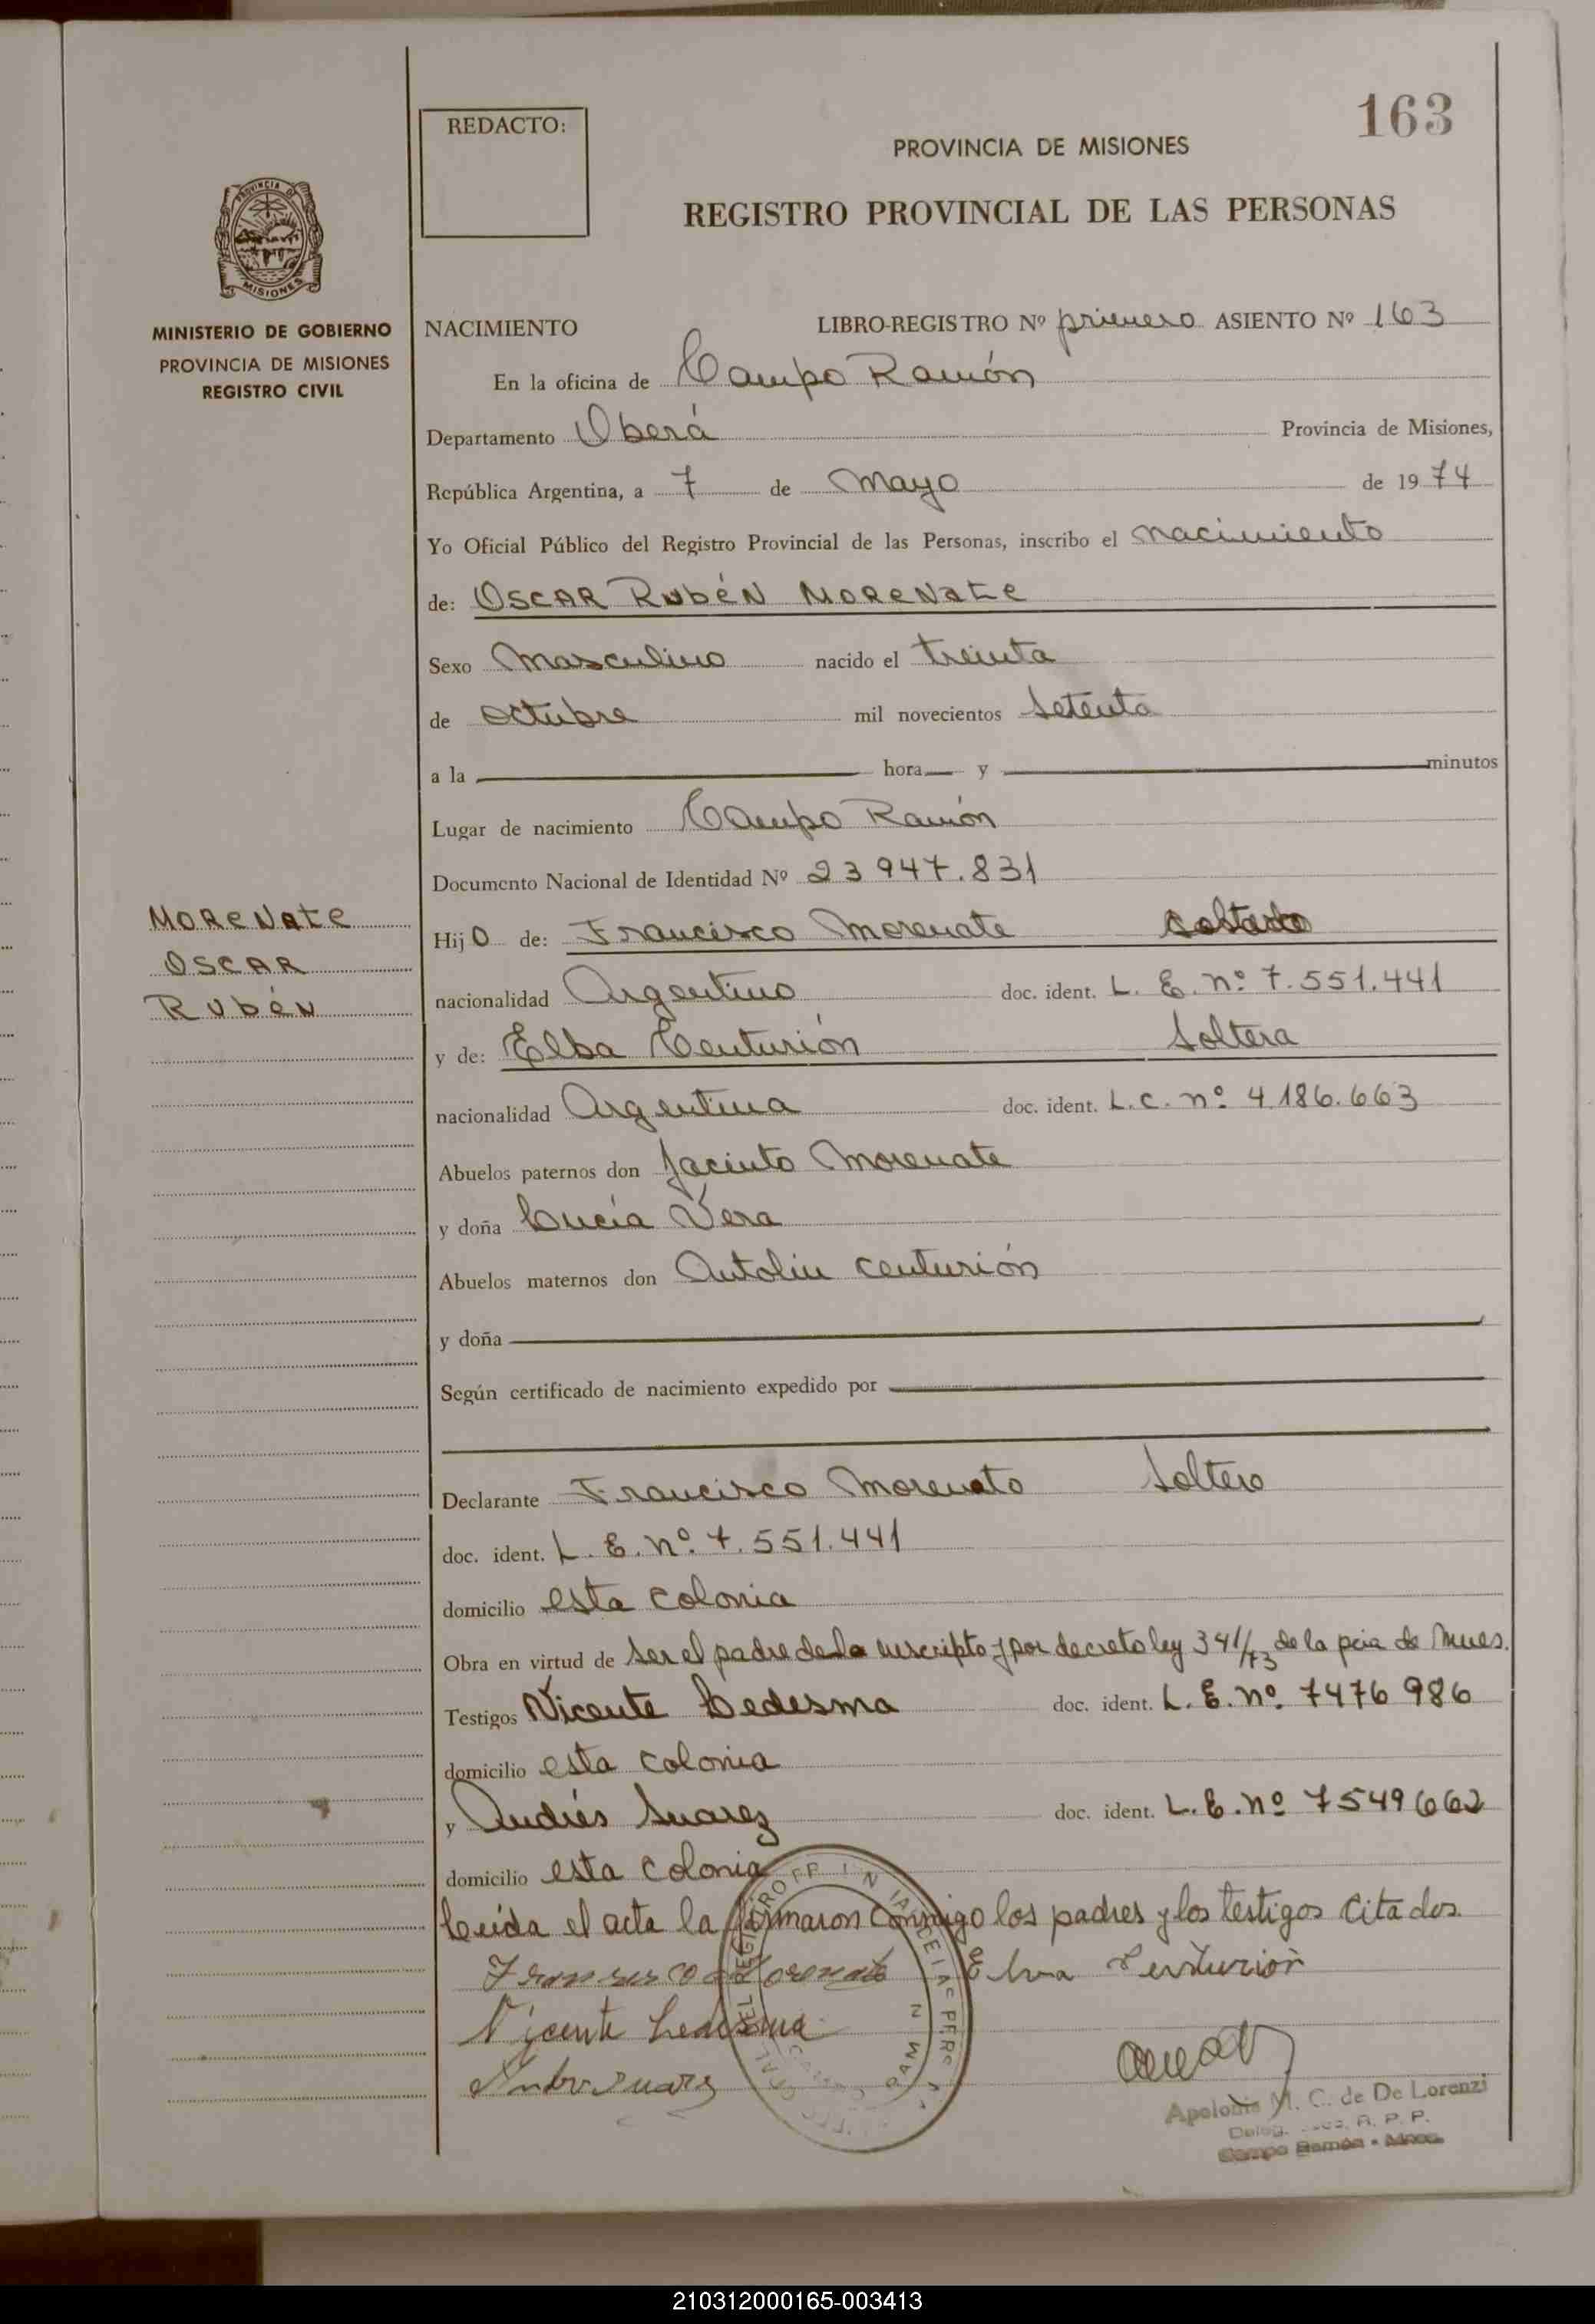 163
REDACTO:
PROVINCIA DE MISIONES
REGISTRO PROVINCIAL DE LAS PERSONAS
PROVINCIA DE
MISIONES
MINISTERIO DE GOBIERNO
PROVINCIA DE MISIONES
REGISTRO CIVIL
NACIMIENTO LIBRO-REGISTRO Nº primero ASIENTO Nº 163
En la oficina de Campo Ramón
Departamento Oberá Provincia de Misiones,
República Argentina, a 7 de Mayo de 1974
Yo Oficial Público del Registro Provincial de las Personas, inscribo el nacimiento
de: OSCAR RubéN MORENATE
Sexo Masculino nacido el treinta
de octubre mil novecientos setenta
a la hora y minutos
Lugar de nacimiento Campo Ramón
Documento Nacional de Identidad Nº 23 947.831
MORENATE
OSCAR
RUbéN
Hijo de: Francisco Morenate
nacionalidad Argentino doc. ident. L. E. nº 7.551.441
y de: Elba Centurión Soltera
nacionalidad Argentina doc. ident. L.C. nº 4.186.663
Abuelos paternos don Jacinto Morenate
y doña Lucía Vera
Abuelos maternos don Antolin Centurión
y doña
Según certificado de nacimiento expedido por
Declarante Francisco Morenate Soltero
doc. ident. L. E. nº. 7.551.441
domicilio esta colonia
Obra en virtud de ser el padre de la inscripto y por decreto ley 341/73 de la pcia de Mnes.
Testigos Vicente Ledesma doc. ident. L. E. nº. 7476 986
domicilio esta colonia
y Andrés Suarez doc. ident. L. E. nº 7549662
domicilio esta colonia
Leída el acta la firmaron conmigo los padres y los testigos citados.
Elva Senturión
Vicente Ledesma
Apolonia M. C. de De Lorenzi
R. P. P.
Campo Ramón - Mnes.
210312000165-003413